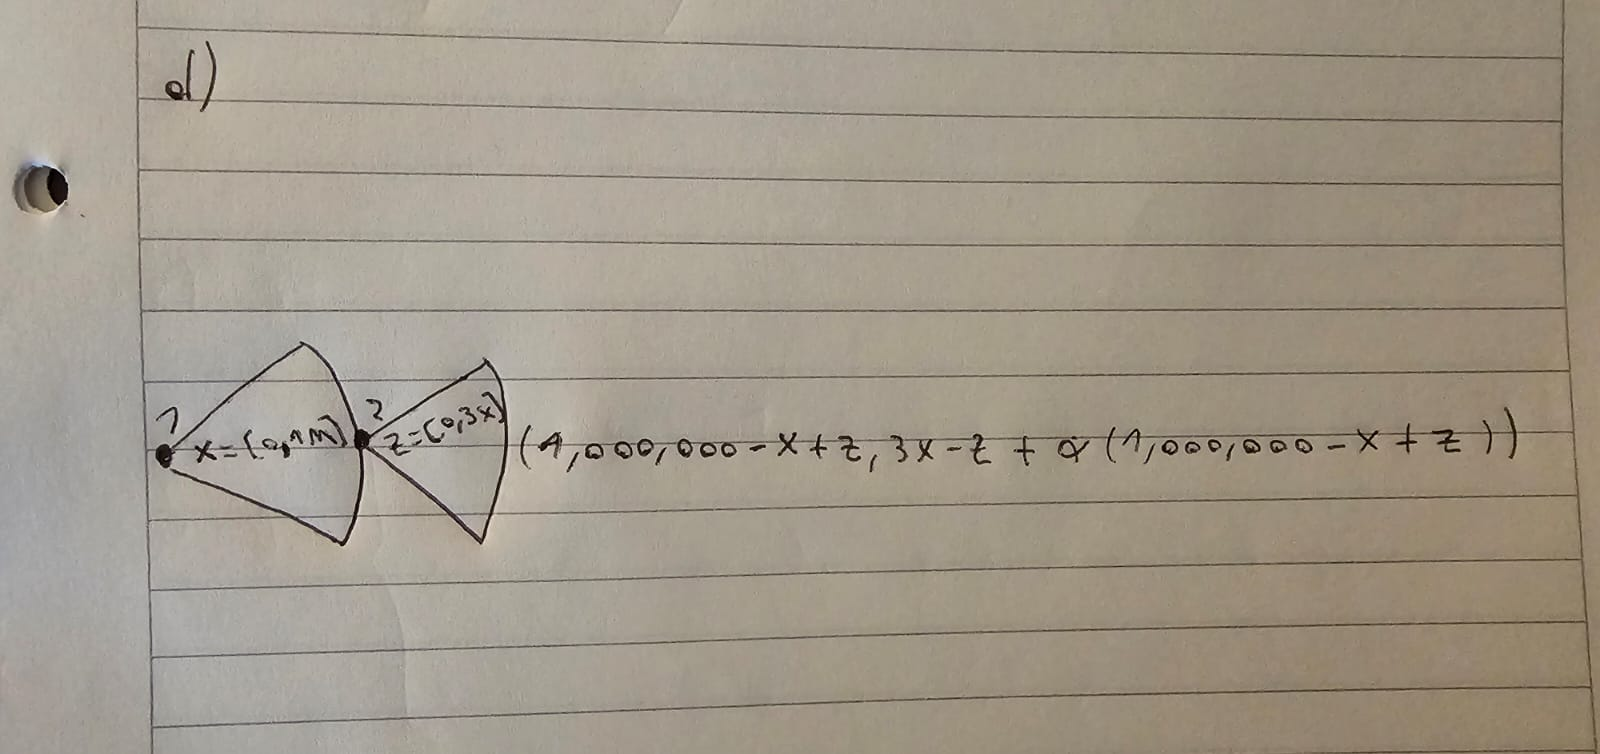 d)
1 2
x=[0,1M] z=[0,3x] (1,000,000-x+z, 3x-z + α(1,000,000-x+z))